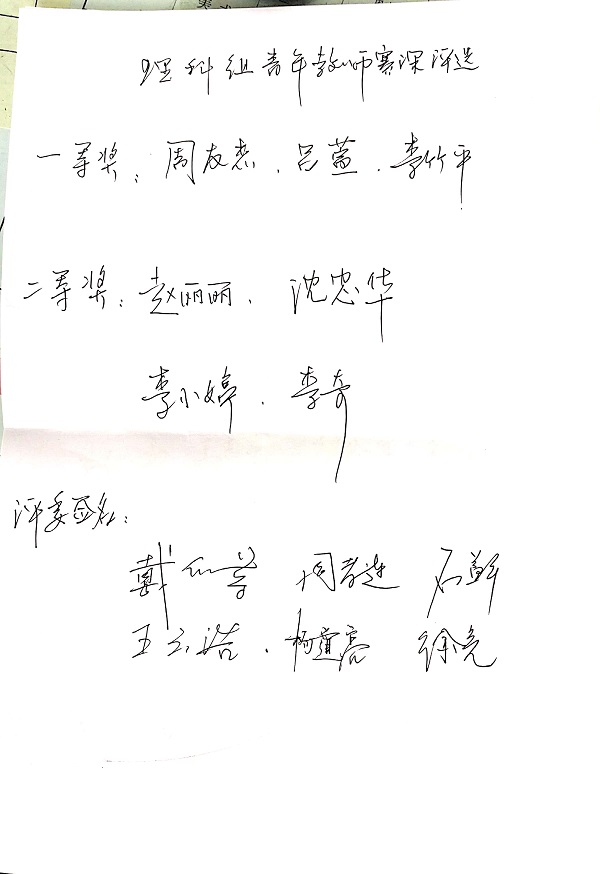 理科组青年教师赛课评选
一等奖：周友杰、吕萱、李竹平
二等奖：赵丽丽、沈忠华
李小婷、李奇
评委签名：
戴 周 连 石
王 浩、杨道亮 徐亮